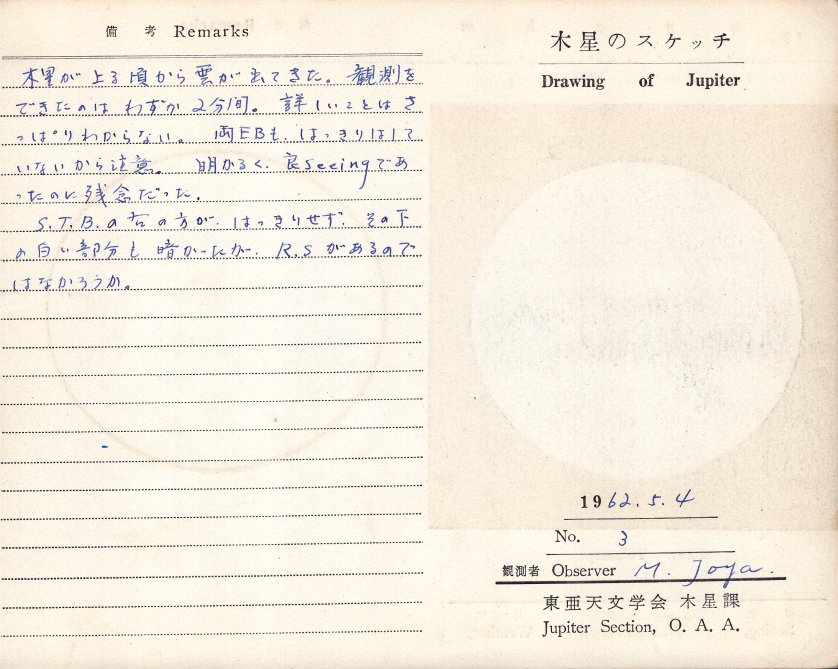 備考 Remarks
木星が上る頃から雲が出てきた。観測を
できたのはわずか2分間。詳しいことはさ
っぱりわからない。両EBも、はっきりはして
いないから注意。明かるく、良seeingであ
ったのに残念だった。
S.T.B.の右の方が、はっきりせず、その下
の白い部分も暗かったが、R.Sがあるので
はなかろうか。
木星のスケッチ
Drawing of Jupiter
1962.5.4
No. 3
観測者 Observer M. Joya.
東亜天文学会 木星課
Jupiter Section, O. A. A.